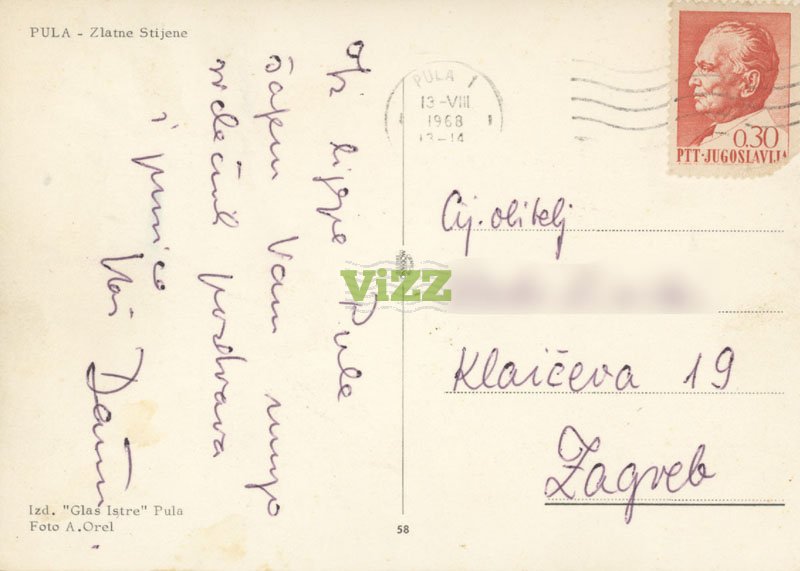 PULA - Zlatne Stijene
Iz lijepe Pule
šaljem Vam mnogo
srdačnih pozdrava
i
Vaš
PULA 1
13-VIII
1968
13-14
0.30
PTT-JUGOSLAVIJA
Cij. obitelj
ViZZ
Klaićeva 19
Zagreb
Izd. "Glas Istre" Pula
Foto A.Orel
58